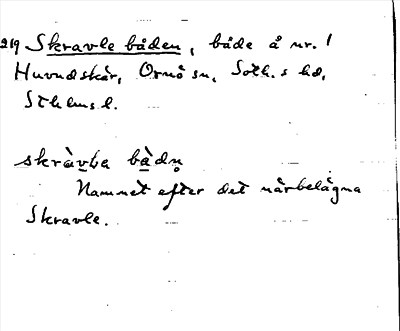 219 Skravle båden, både å nr. 1
Huvudskär, Ornö sn, Soth.s hd,
Sthlms l.
skràvḷa bàdn̥
Namnet efter det närbelägna
Skravle.